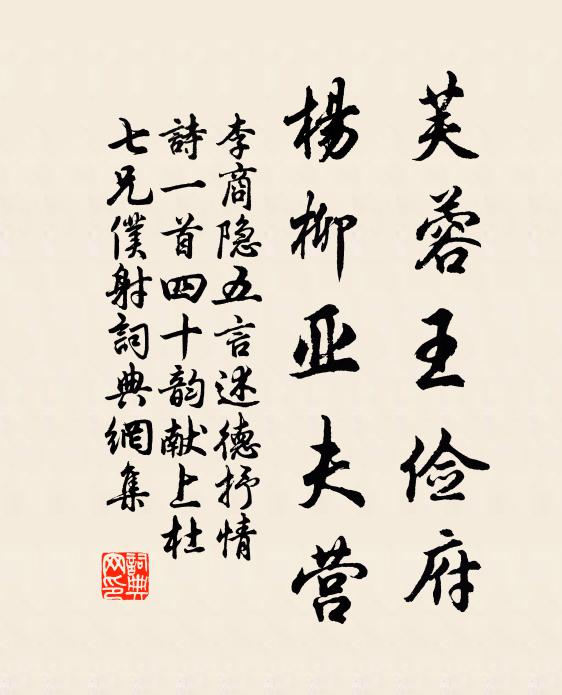 芙蓉王俭府
楊柳亚夫营
李商隐五言述德抒情
詩一首四十韵献上杜
七兄僕射詞典網集
詞典网印